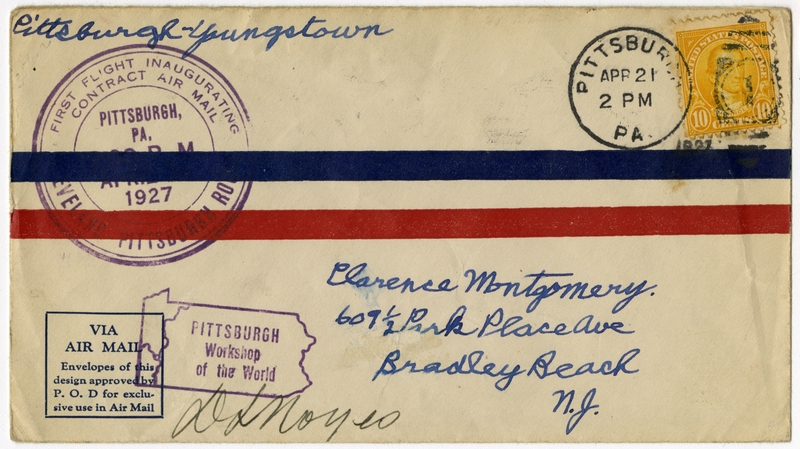 Pittsburgh-Youngstown
FIRST FLIGHT INAUGURATING
CONTRACT AIR MAIL
PITTSBURGH,
PA.
P. M.
1927
CLEVELAND PITTSBURGH
PITTSBURGH
APR 21
2 PM
PA.
1927
UNITED STATES POSTAGE
10 10
Clarence Montgomery.
609 1/2 Park Place Ave
Bradley Beach
N.J.
VIA
AIR MAIL
Envelopes of this
design approved by
P. O. D for exclu-
sive use in Air Mail
PITTSBURGH
Workshop
of the World